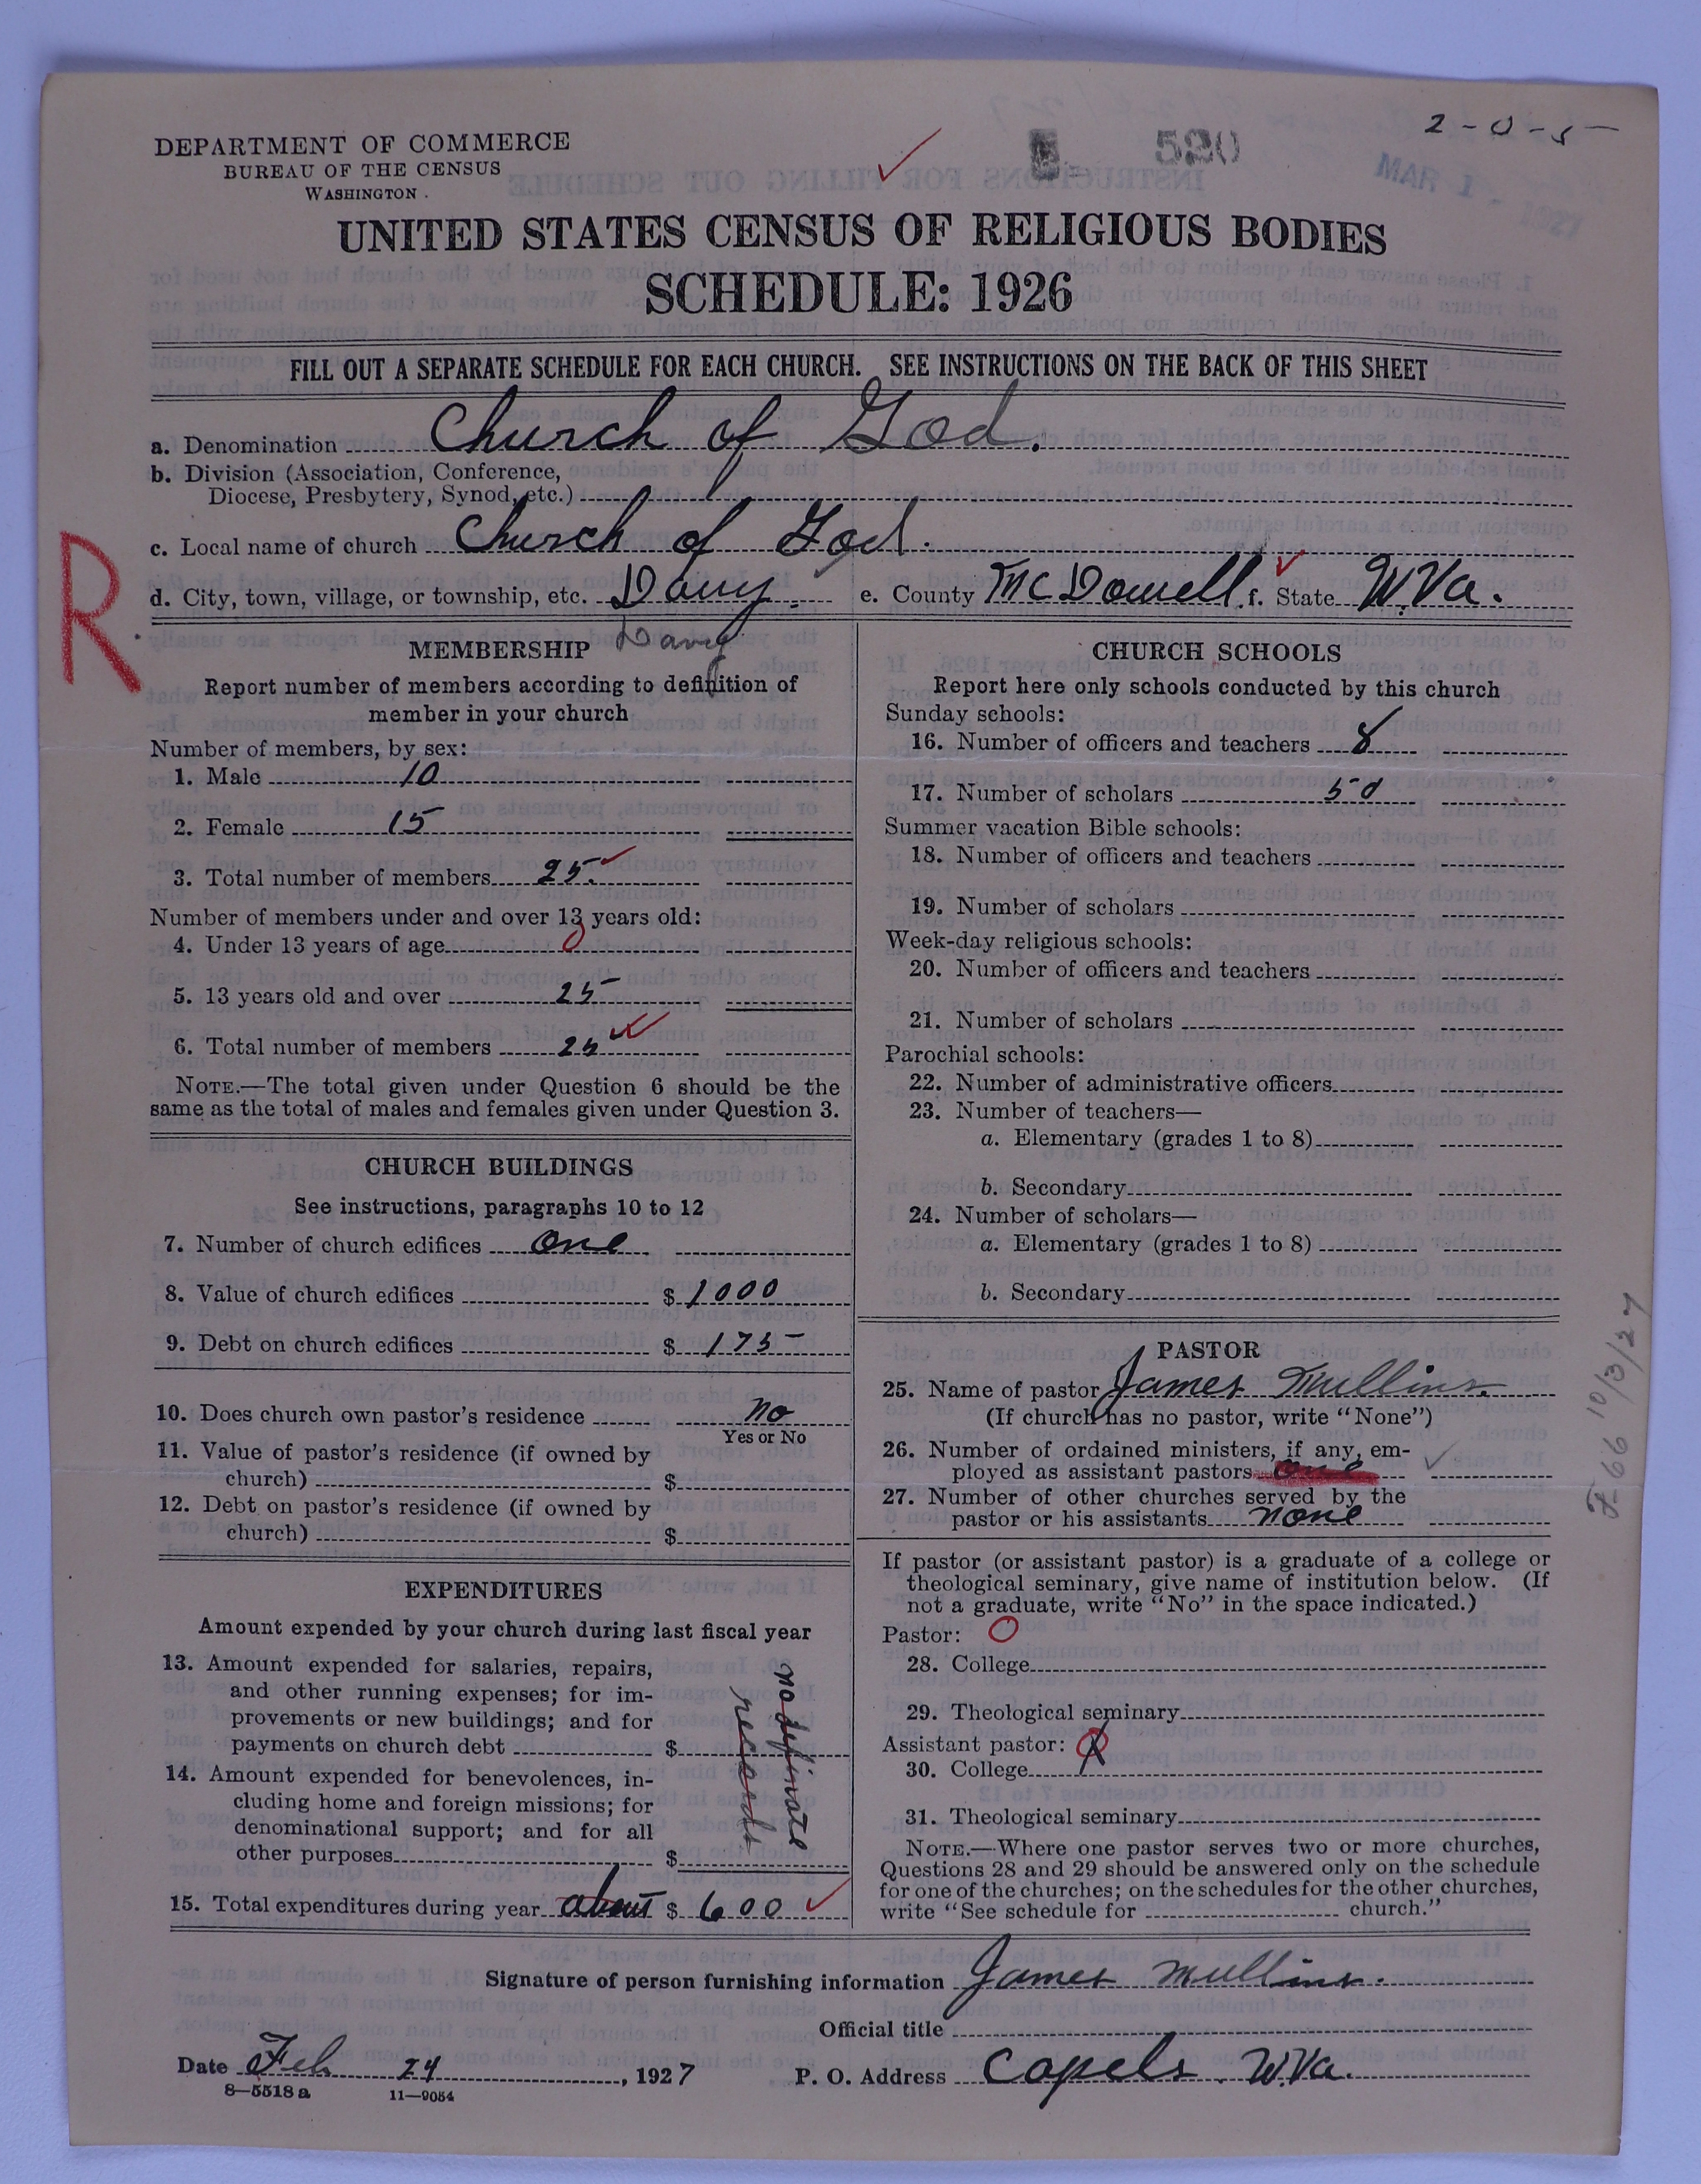 2-0-5
520
MAR 1 - 1927
DEPARTMENT OF COMMERCE
BUREAU OF THE CENSUS
WASHINGTON
UNITED STATES CENSUS OF RELIGIOUS BODIES
SCHEDULE: 1926
FILL OUT A SEPARATE SCHEDULE FOR EACH CHURCH. SEE INSTRUCTIONS ON THE BACK OF THIS SHEET
a. Denomination Church of God.
b. Division (Association, Conference,
Diocese, Presbytery, Synod, etc.)
c. Local name of church Church of God.
d. City, town, village, or township, etc. Davy. e. County McDowell f. State W.Va.
R
Davy
MEMBERSHIP
Report number of members according to definition of
member in your church
Number of members, by sex:
1. Male 10
2. Female 15
3. Total number of members 25
Number of members under and over 13 years old:
4. Under 13 years of age 0
5. 13 years old and over 25
6. Total number of members 25
NOTE.—The total given under Question 6 should be the
same as the total of males and females given under Question 3.
CHURCH BUILDINGS
See instructions, paragraphs 10 to 12
7. Number of church edifices one
8. Value of church edifices $ 1000
9. Debt on church edifices $ 175
10. Does church own pastor's residence no
Yes or No
11. Value of pastor's residence (if owned by
church) $
12. Debt on pastor's residence (if owned by
church) $
EXPENDITURES
Amount expended by your church during last fiscal year
13. Amount expended for salaries, repairs,
and other running expenses; for im-
provements or new buildings; and for
payments on church debt $
14. Amount expended for benevolences, in-
cluding home and foreign missions; for
denominational support; and for all
other purposes $
no definate
records
15. Total expenditures during year about $ 600
CHURCH SCHOOLS
Report here only schools conducted by this church
Sunday schools:
16. Number of officers and teachers 8
17. Number of scholars 50
Summer vacation Bible schools:
18. Number of officers and teachers
19. Number of scholars
Week-day religious schools:
20. Number of officers and teachers
21. Number of scholars
Parochial schools:
22. Number of administrative officers
23. Number of teachers—
a. Elementary (grades 1 to 8)
b. Secondary
24. Number of scholars—
a. Elementary (grades 1 to 8)
b. Secondary
PASTOR
25. Name of pastor James Mullins.
(If church has no pastor, write "None")
26. Number of ordained ministers, if any, em-
ployed as assistant pastors one
27. Number of other churches served by the
pastor or his assistants none
If pastor (or assistant pastor) is a graduate of a college or
theological seminary, give name of institution below. (If
not a graduate, write "No" in the space indicated.)
Pastor: O
28. College
29. Theological seminary
Assistant pastor:
30. College
31. Theological seminary
NOTE.—Where one pastor serves two or more churches,
Questions 28 and 29 should be answered only on the schedule
for one of the churches; on the schedules for the other churches,
write "See schedule for church."
10/3/27
Signature of person furnishing information James Mullins.
Official title
Date Feb 24, 1927 P. O. Address Capels W.Va.
8—5518 a 11—9054